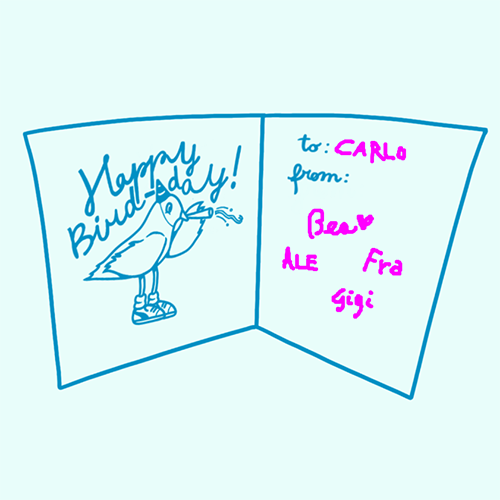 Happy
Bird-day!
to: CARLO
from:
Bea
ALE Fra
Gigi